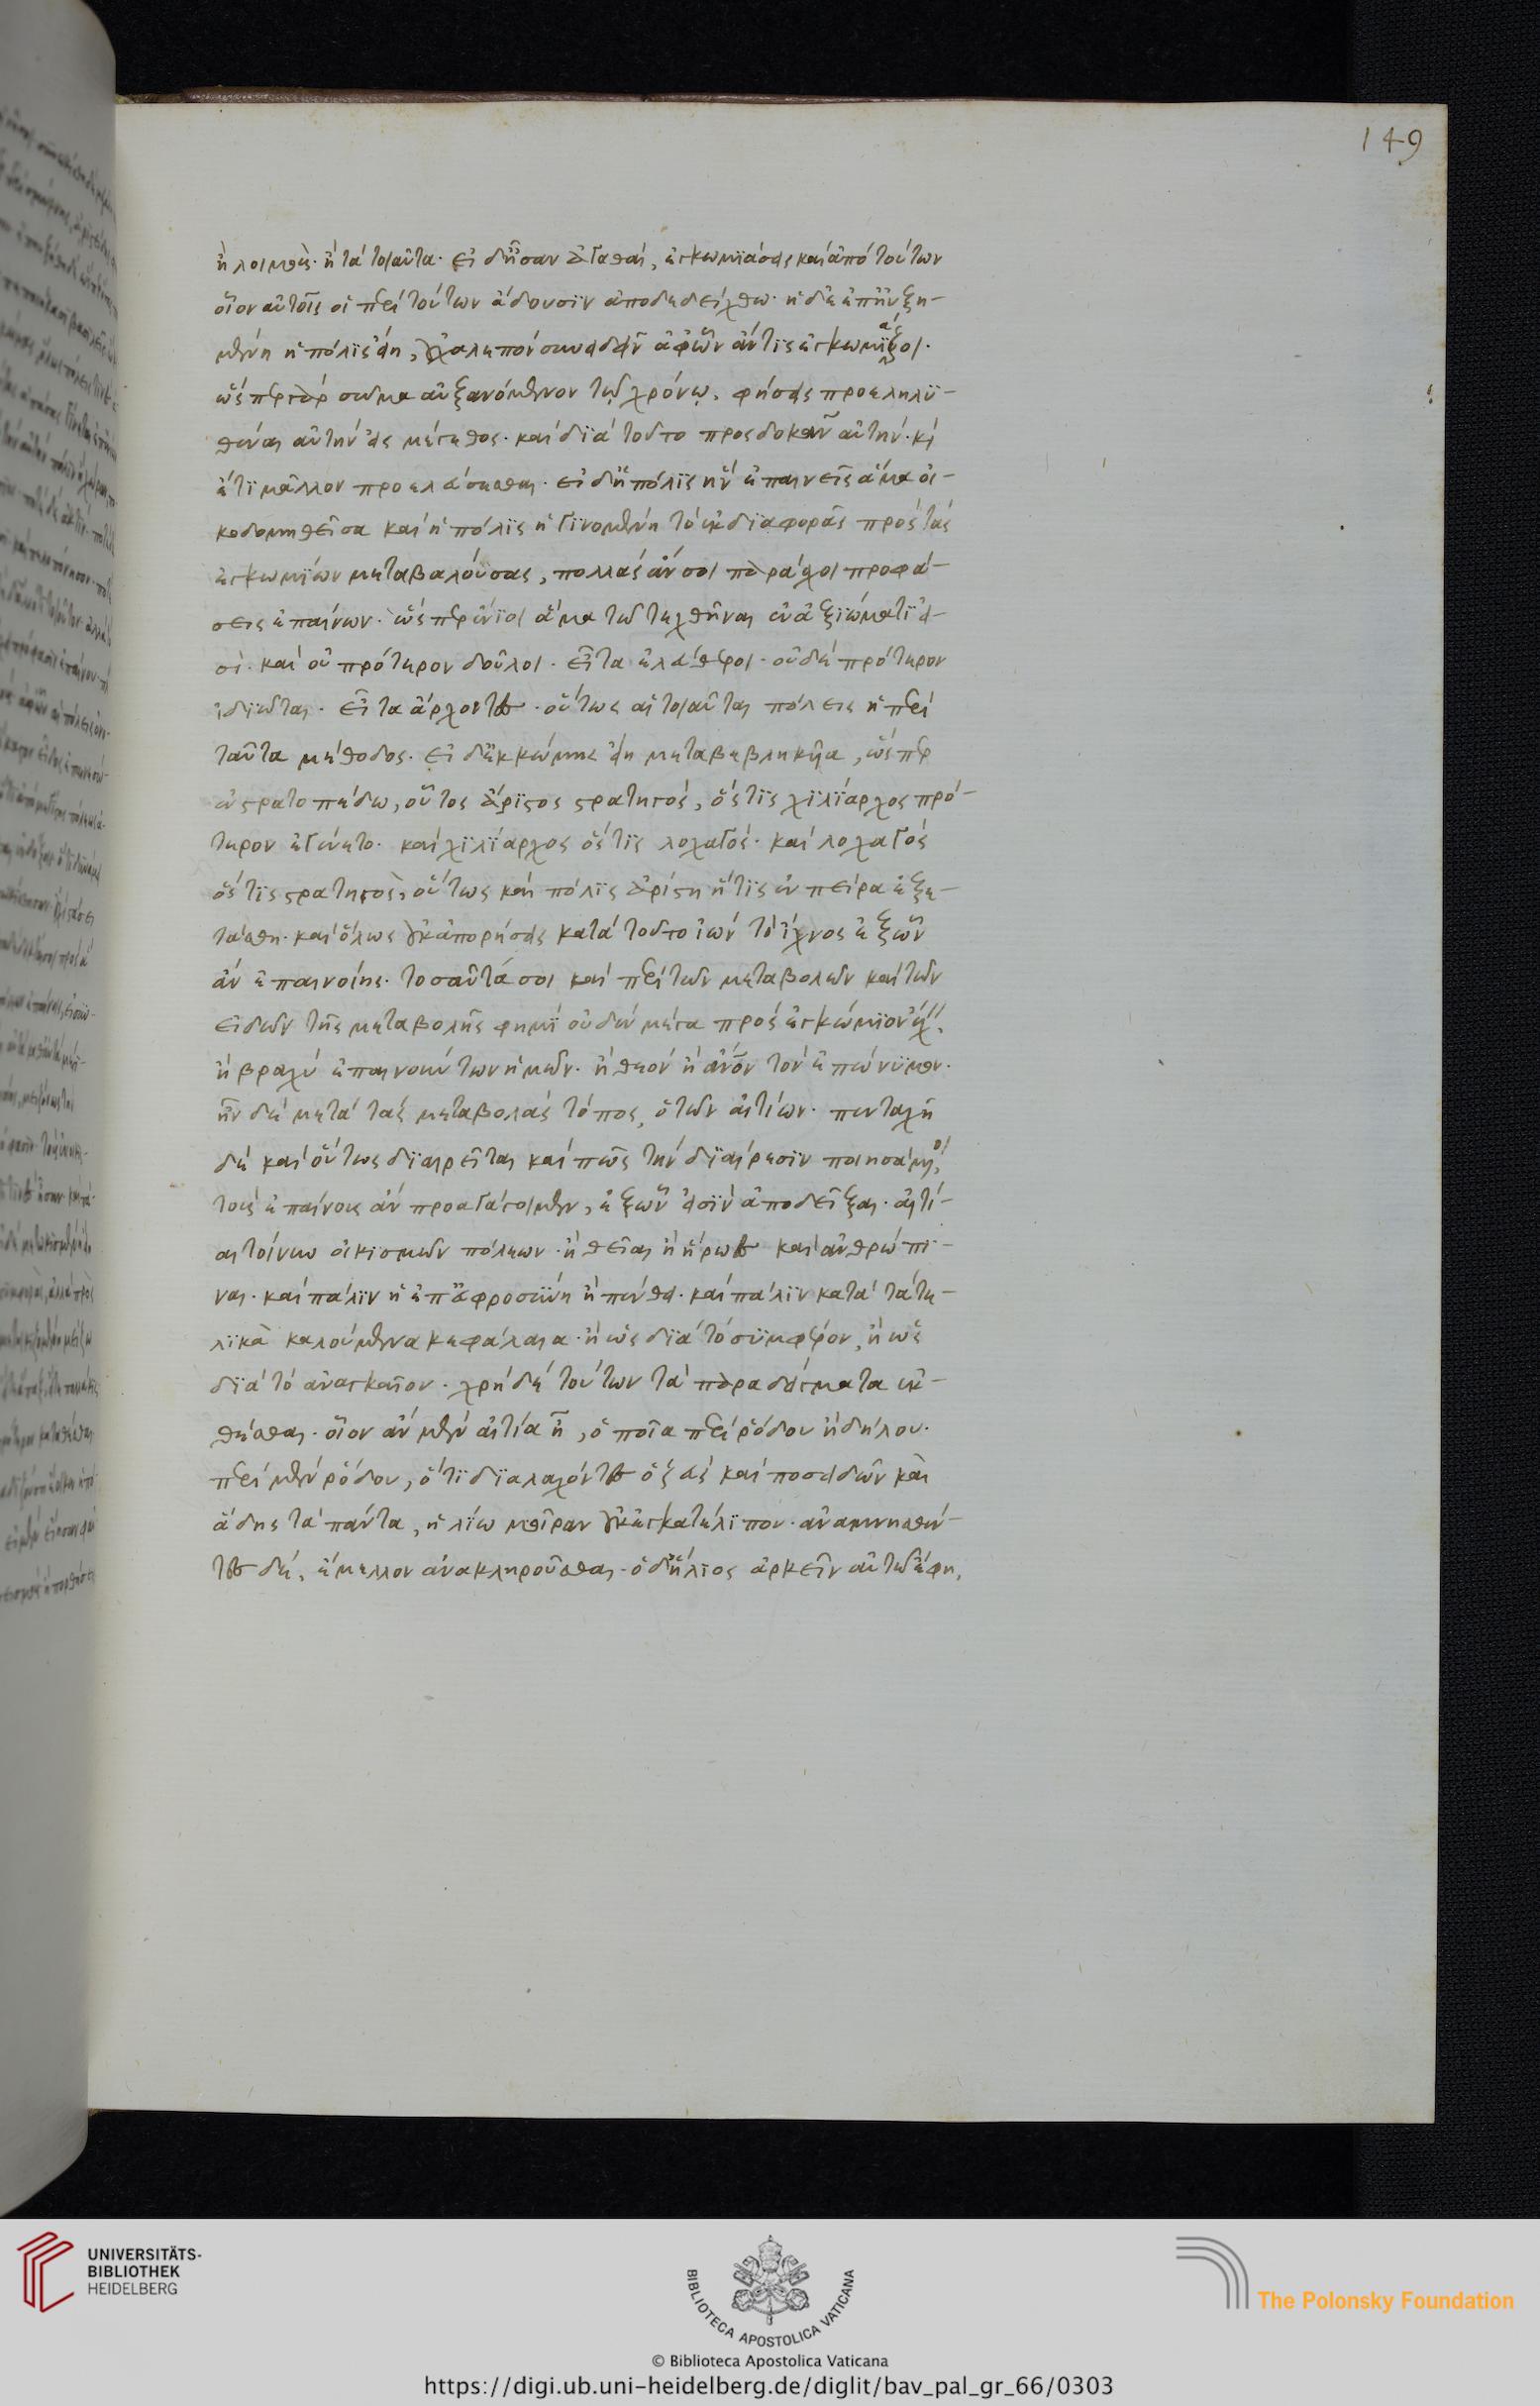 149
ἢ λοιμὸς· ἢ τὰ τοιαῦτα· εἰ δ' ἦσαν ἀγαθαί, ἐγκωμιάσεις καὶ ἀπὸ τούτων
οἷον αὐτοῖς οἱ περὶ τούτων ἄδουσιν ἀποδεδείχθω· εἰ δὲ ἐπηυξη-
μένη ἡ πόλις εἴη, χαλεπὸν συνιδεῖν ἀφ' ὧν ἄν τις ἐγκωμιάζοι·
ὥσπερ γὰρ σῶμα αὐξανόμενον τῷ χρόνῳ, φήσεις προεληλυ-
θέναι αὐτὴν εἰς μέγεθος· καὶ διὰ τοῦτο προσδοκᾶν αὐτὴν· καὶ
ἔτι μᾶλλον προελεύσεσθαι· εἰ δ' ἡ πόλις ἣν ἐπαινεῖς ἅμα οἰ-
κοδομηθεῖσα καὶ ἡ πόλις ἡ γινομένη τὸ ἐκ διαφορᾶς πρὸς τὰς
ἐκ κωμῶν μεταβαλούσας, πολλὰς ἄν σοι παράσχοι προφά-
σεις ἐπαίνων· ὥσπερ ἔνιοι ἅμα τῷ τεχθῆναι ἐν ἀξιώματι εἰ-
σὶ· καὶ οὐ πρότερον δοῦλοι· εἶτα ἐλεύθεροι· οὐδὲ πρότερον
ἰδιῶται· εἶτα ἄρχοντες· οὕτως αἱ τοιαῦται πόλεις ἡ περὶ
ταῦτα μέθοδος· εἰ δ' ἐκ κώμης εἴη μεταβεβληκυῖα, ὥσπερ
ἐν στρατοπέδω, οὗτος ἄριστος στρατηγός, ὅστις χιλίαρχος πρό-
τερον ἐγένετο· καὶ χιλίαρχος ὅστις λοχαγός· καὶ λοχαγὸς
ὅστις στρατηγὸς, οὕτως καὶ πόλις ἀρίστη ἥτις ἐν πείρα ἐξη-
τάσθη· καὶ ὅλως οὐκ ἀπορήσεις κατὰ τοῦτο ἰὼν τὸ ἴχνος ἐξ ὧν
ἂν ἐπαινοίης· τοσαῦτά σοι καὶ περὶ τῶν μεταβολῶν καὶ τῶν
εἰδῶν τῆς μεταβολῆς φημὶ οὐδὲν μέγα πρὸς ἐγκώμιον ἔχειν,
ἢ βραχὺ ἐπαινούντων ἡμῶν· ἢ θεὸν ἢ ἄνον τὸν ἐπώνυμον·
ἦν δὲ μετὰ τὰς μεταβολὰς τόπος, ὁ τῶν αἰτίων· πενταχῆ
δὲ καὶ οὕτως διαιρεῖται καὶ πῶς τὴν διαίρεσιν ποιησάμενοι,
τοὺς ἐπαίνους ἂν προαγάγοιμεν, ἐξ ὧν εἰσὶν ἀποδεῖξαι· αἰτί-
αι τοίνυν οἰκισμῶν πόλεων· ἢ θεῖαι ἢ ἥρωες καὶ ἀνθρώπι-
ναι· καὶ πάλιν ἢ ἐπ' εὐφροσύνη ἢ πένθει· καὶ πάλιν κατὰ τὰ τε-
λικὰ καλούμενα κεφάλαια· ἢ ὡς διὰ τὸ συμφέρον, ἢ ὡς
διὰ τὸ ἀναγκαῖον· χρὴ δὲ τούτων τὰ παραδείγματα ἐκ-
θέσθαι· οἷον ἂν μὲν αἰτία ἦ, ὁποῖα περὶ ῥόδου ἢ δήλου·
περὶ μὲν ῥόδου, ὅτι διαλαχόντες ὁ ζεὺς καὶ ποσειδῶν καὶ
ἅδης τὰ πάντα, ἡλίω μοῖραν οὐκ ἐγκατέλιπον· ἀναμνησθέν-
τες δὲ, ἔμελλον ἀνακληροῦσθαι· ὁ δ' ἥλιος ἀρκεῖν αὐτῷ ἔφη,
UNIVERSITÄTS-
BIBLIOTHEK
HEIDELBERG
BIBLIOTECA APOSTOLICA VATICANA
The Polonsky Foundation
© Biblioteca Apostolica Vaticana
https://digi.ub.uni-heidelberg.de/diglit/bav_pal_gr_66/0303